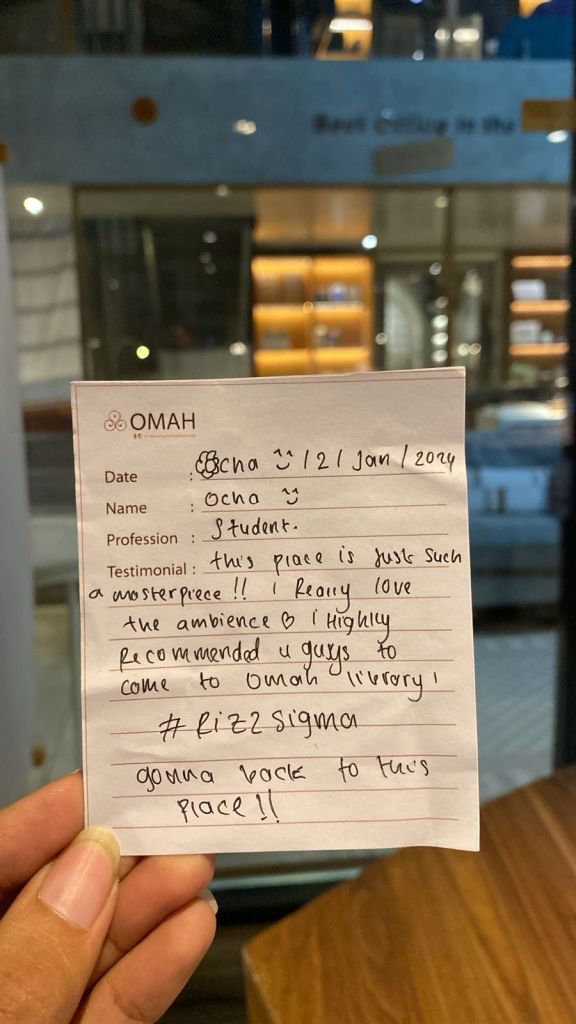 Best Office in the
OMAH
Date : Ocha 2 / Jan / 2024
Name : Ocho
Profession : Student.
Testimonial : this place is just such
a masterpiece !! I Really love
the ambience ♡ I Highly
Recommended u guys to
come to Omah library!
# Rizz Sigma
gonna back to this
place !!